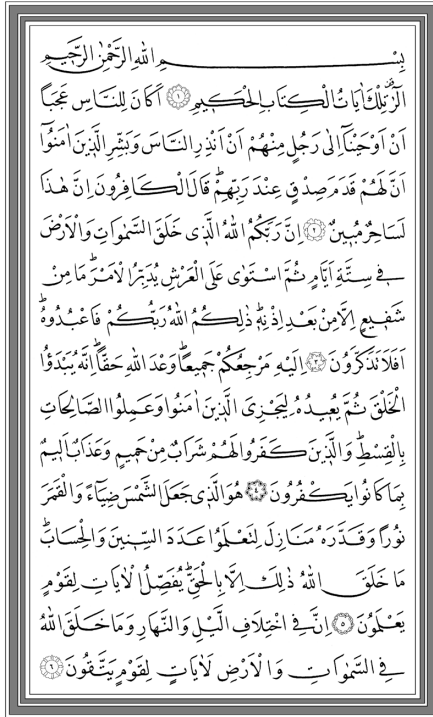 بِسْمِ اللهِ الرَّحْمٰنِ الرَّحٖيمِ
الٓرٰ تِلْكَ اٰيَاتُ الْكِتَابِ الْحَكٖيمِ ﴿١﴾ اَكَانَ لِلنَّاسِ عَجَباً
اَنْ اَوْحَيْنَٓا اِلٰى رَجُلٍ مِنْهُمْ اَنْ اَنْذِرِ النَّاسَ وَبَشِّرِ الَّذٖينَ اٰمَنُٓوا
اَنَّ لَهُمْ قَدَمَ صِدْقٍ عِنْدَ رَبِّهِمْؕ قَالَ الْكَافِرُونَ اِنَّ هٰذَا
لَسَاحِرٌ مُبٖينٌ ﴿٢﴾ اِنَّ رَبَّكُمُ اللهُ الَّذٖى خَلَقَ السَّمٰوَاتِ وَالْاَرْضَ
فٖى سِتَّةِ اَيَّامٍ ثُمَّ اسْتَوٰى عَلَى الْعَرْشِ يُدَبِّرُ الْاَمْرَؕ مَا مِنْ
شَفٖيعٍ اِلَّا مِنْ بَعْدِ اِذْنِهٖؕ ذٰلِكُمُ اللهُ رَبُّكُمْ فَاعْبُدُوهُؕ
اَفَلَا تَذَكَّرُونَ ﴿٣﴾ اِلَيْهِ مَرْجِعُكُمْ جَمٖيعاًؕ وَعْدَ اللهِ حَقاًّؕ اِنَّهُ يَبْدَؤُا
الْخَلْقَ ثُمَّ يُعٖيدُهُ لِيَجْزِىَ الَّذٖينَ اٰمَنُوا وَعَمِلُوا الصَّالِحَاتِ
بِالْقِسْطِؕ وَالَّذٖينَ كَفَرُوا لَهُمْ شَرَابٌ مِنْ حَمٖيمٍ وَعَذَابٌ اَلٖيمٌ
بِمَا كَانُوا يَكْفُرُونَ ﴿٤﴾ هُوَ الَّذٖى جَعَلَ الشَّمْسَ ضِيَٓاءً وَالْقَمَرَ
نُوراً وَقَدَّرَهُ مَنَازِلَ لِتَعْلَمُوا عَدَدَ السِّنٖينَ وَالْحِسَابَؕ
مَا خَلَقَ اللهُ ذٰلِكَ اِلَّا بِالْحَقِّۚ يُفَصِّلُ الْاٰيَاتِ لِقَوْمٍ
يَعْلَمُونَ ﴿٥﴾ اِنَّ فٖى اخْتِلَافِ الَّيْلِ وَالنَّهَارِ وَمَا خَلَقَ اللهُ
فِى السَّمٰوَاتِ وَالْاَرْضِ لَاٰيَاتٍ لِقَوْمٍ يَتَّقُونَ ﴿٦﴾